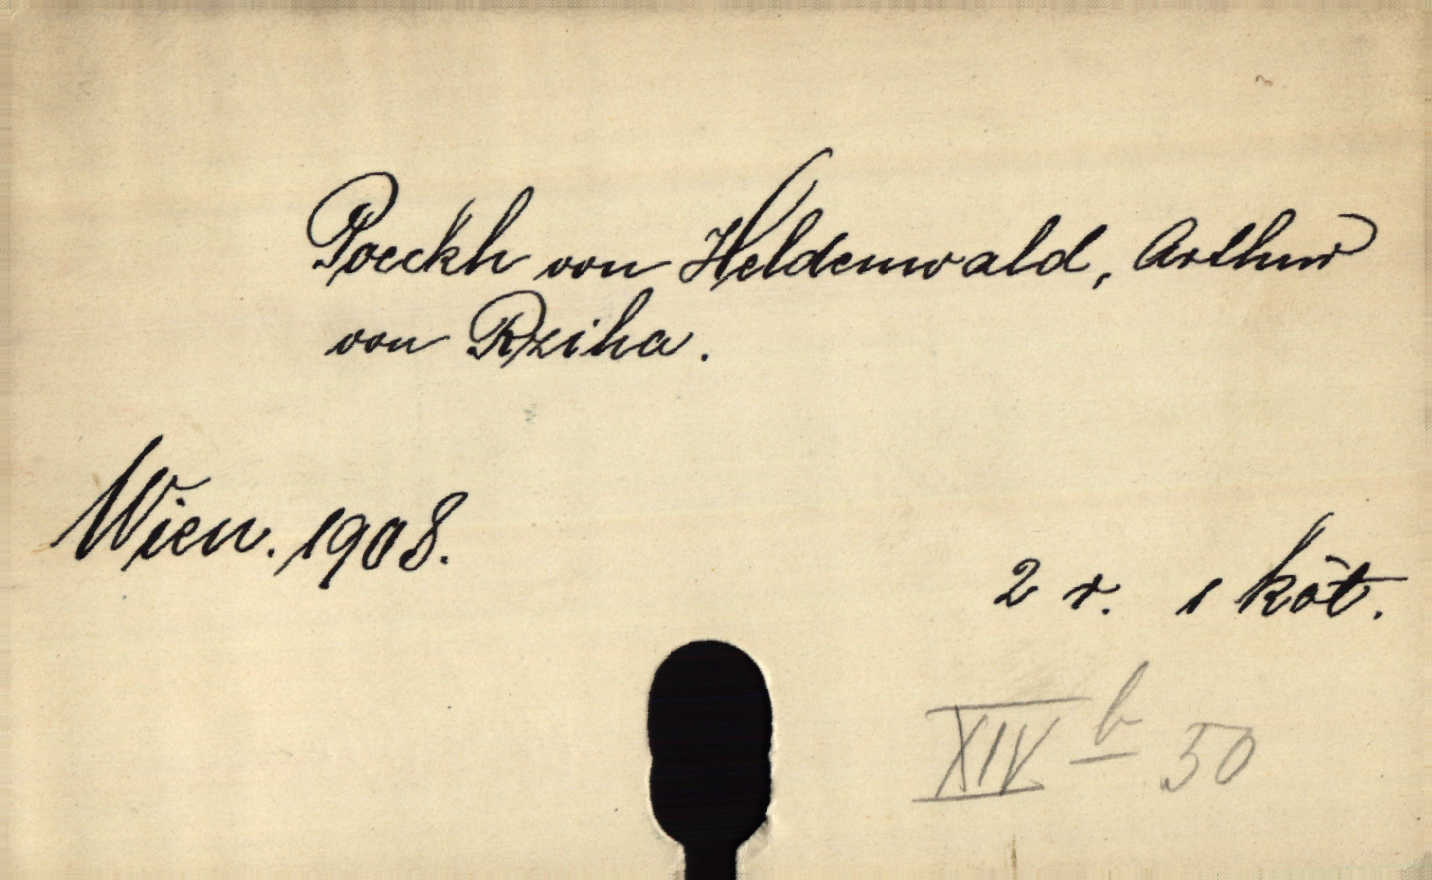 Poeckh von Heldenwald, Arthur
von Rziha.
Wien. 1908.
2 r. 1 köt.
XIV b 50